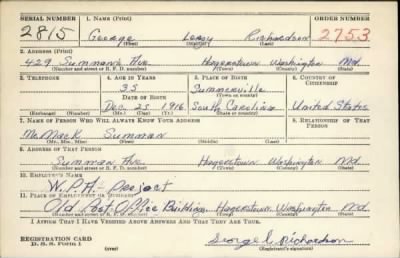 SERIAL NUMBER 1. NAME (Print) ORDER NUMBER
2815 George Leroy Richardson 2753
(First) (Middle) (Last)
2. ADDRESS (Print)
429 Summans Ave. Hagerstown Washington Md.
(Number and street or R. F. D. number) (Town) (County) (State)
3. TELEPHONE 4. AGE IN YEARS 5. PLACE OF BIRTH 6. COUNTRY OF CITIZENSHIP
35 Summerville
DATE OF BIRTH (Town or county)
Dec. 25 1916 South Carolina United States
(Exchange) (Number) (Mo.) (Day) (Yr.) (State or country)
7. NAME OF PERSON WHO WILL ALWAYS KNOW YOUR ADDRESS 8. RELATIONSHIP OF THAT PERSON
Mr. Mack Summan
(Mr., Mrs., Miss) (First) (Middle) (Last)
9. ADDRESS OF THAT PERSON
Summan Ave. Hagerstown Washington Md.
(Number and street or R. F. D. number) (Town) (County) (State)
10. EMPLOYER'S NAME
W.P.A. - Project
11. PLACE OF EMPLOYMENT OR BUSINESS
Old Post Office Building Hagerstown, Washington Md.
(Number and street or R. F. D. number) (Town) (County) (State)
I AFFIRM THAT I HAVE VERIFIED ABOVE ANSWERS AND THAT THEY ARE TRUE.
REGISTRATION CARD George L Richardson
D. S. S. Form 1 (over) (Registrant's signature)